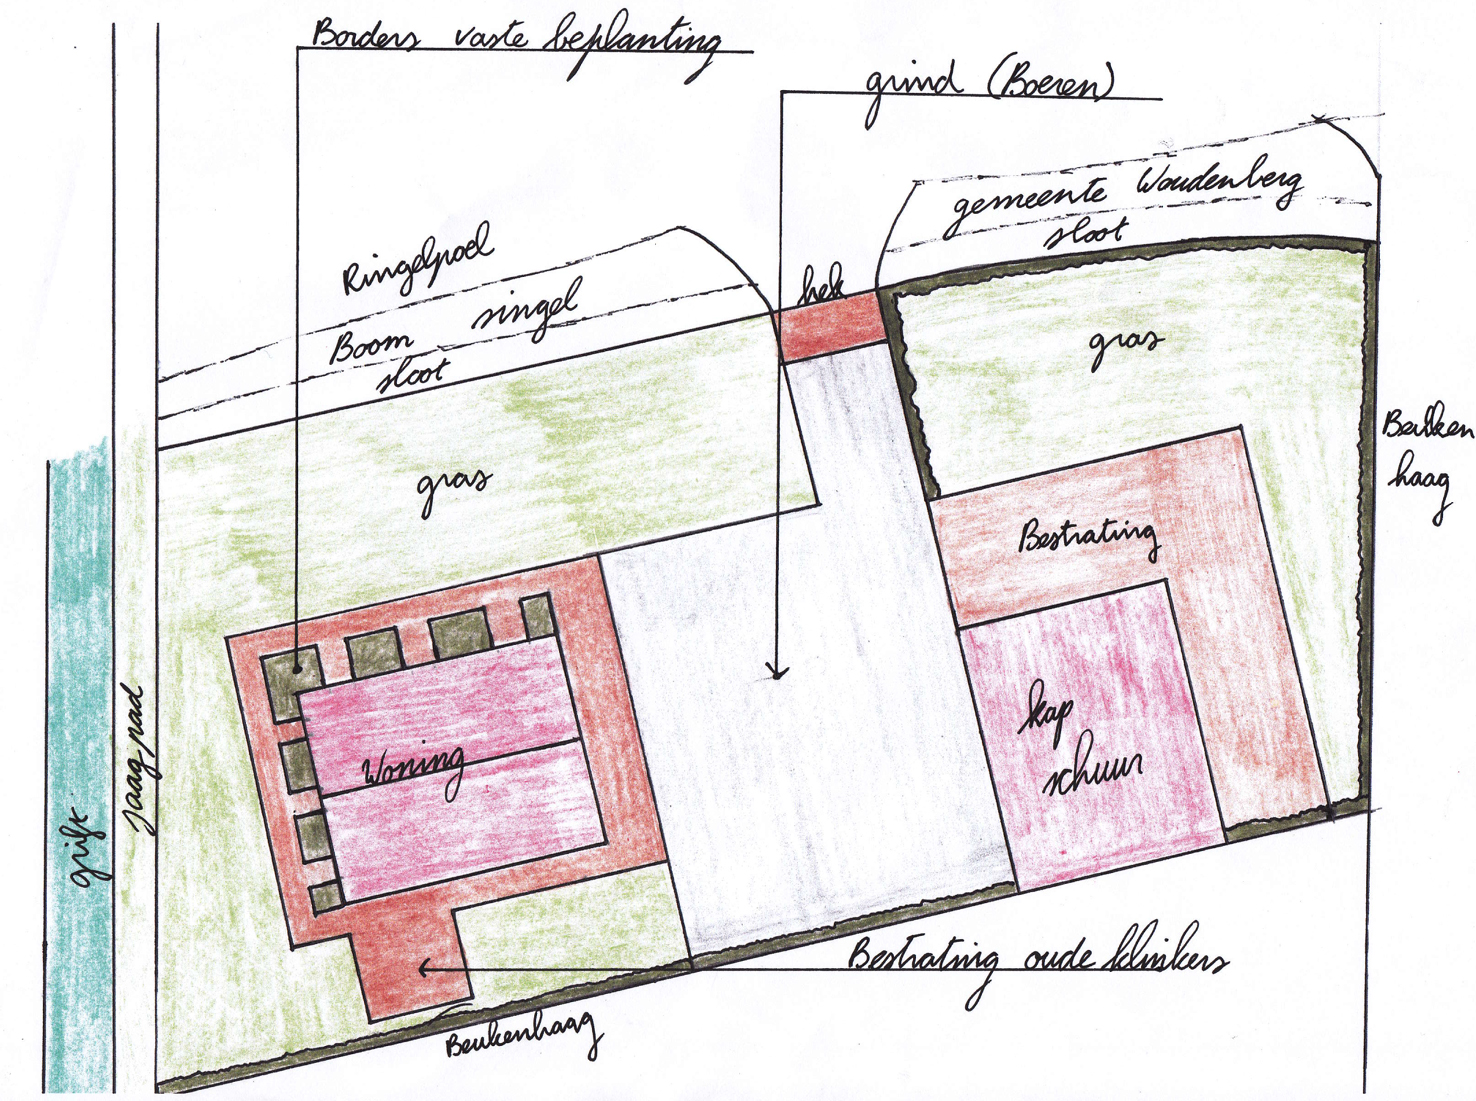 Borders vaste beplanting
grind (Boeren)
gemeente Woudenberg
sloot
Ringelpoel
Boom singel
sloot
hek
gras
gras
Beuken
haag
Bestrating
kap
schuur
Woning
jaagpad
grift
Bestrating oude klinkers
Beukenhaag